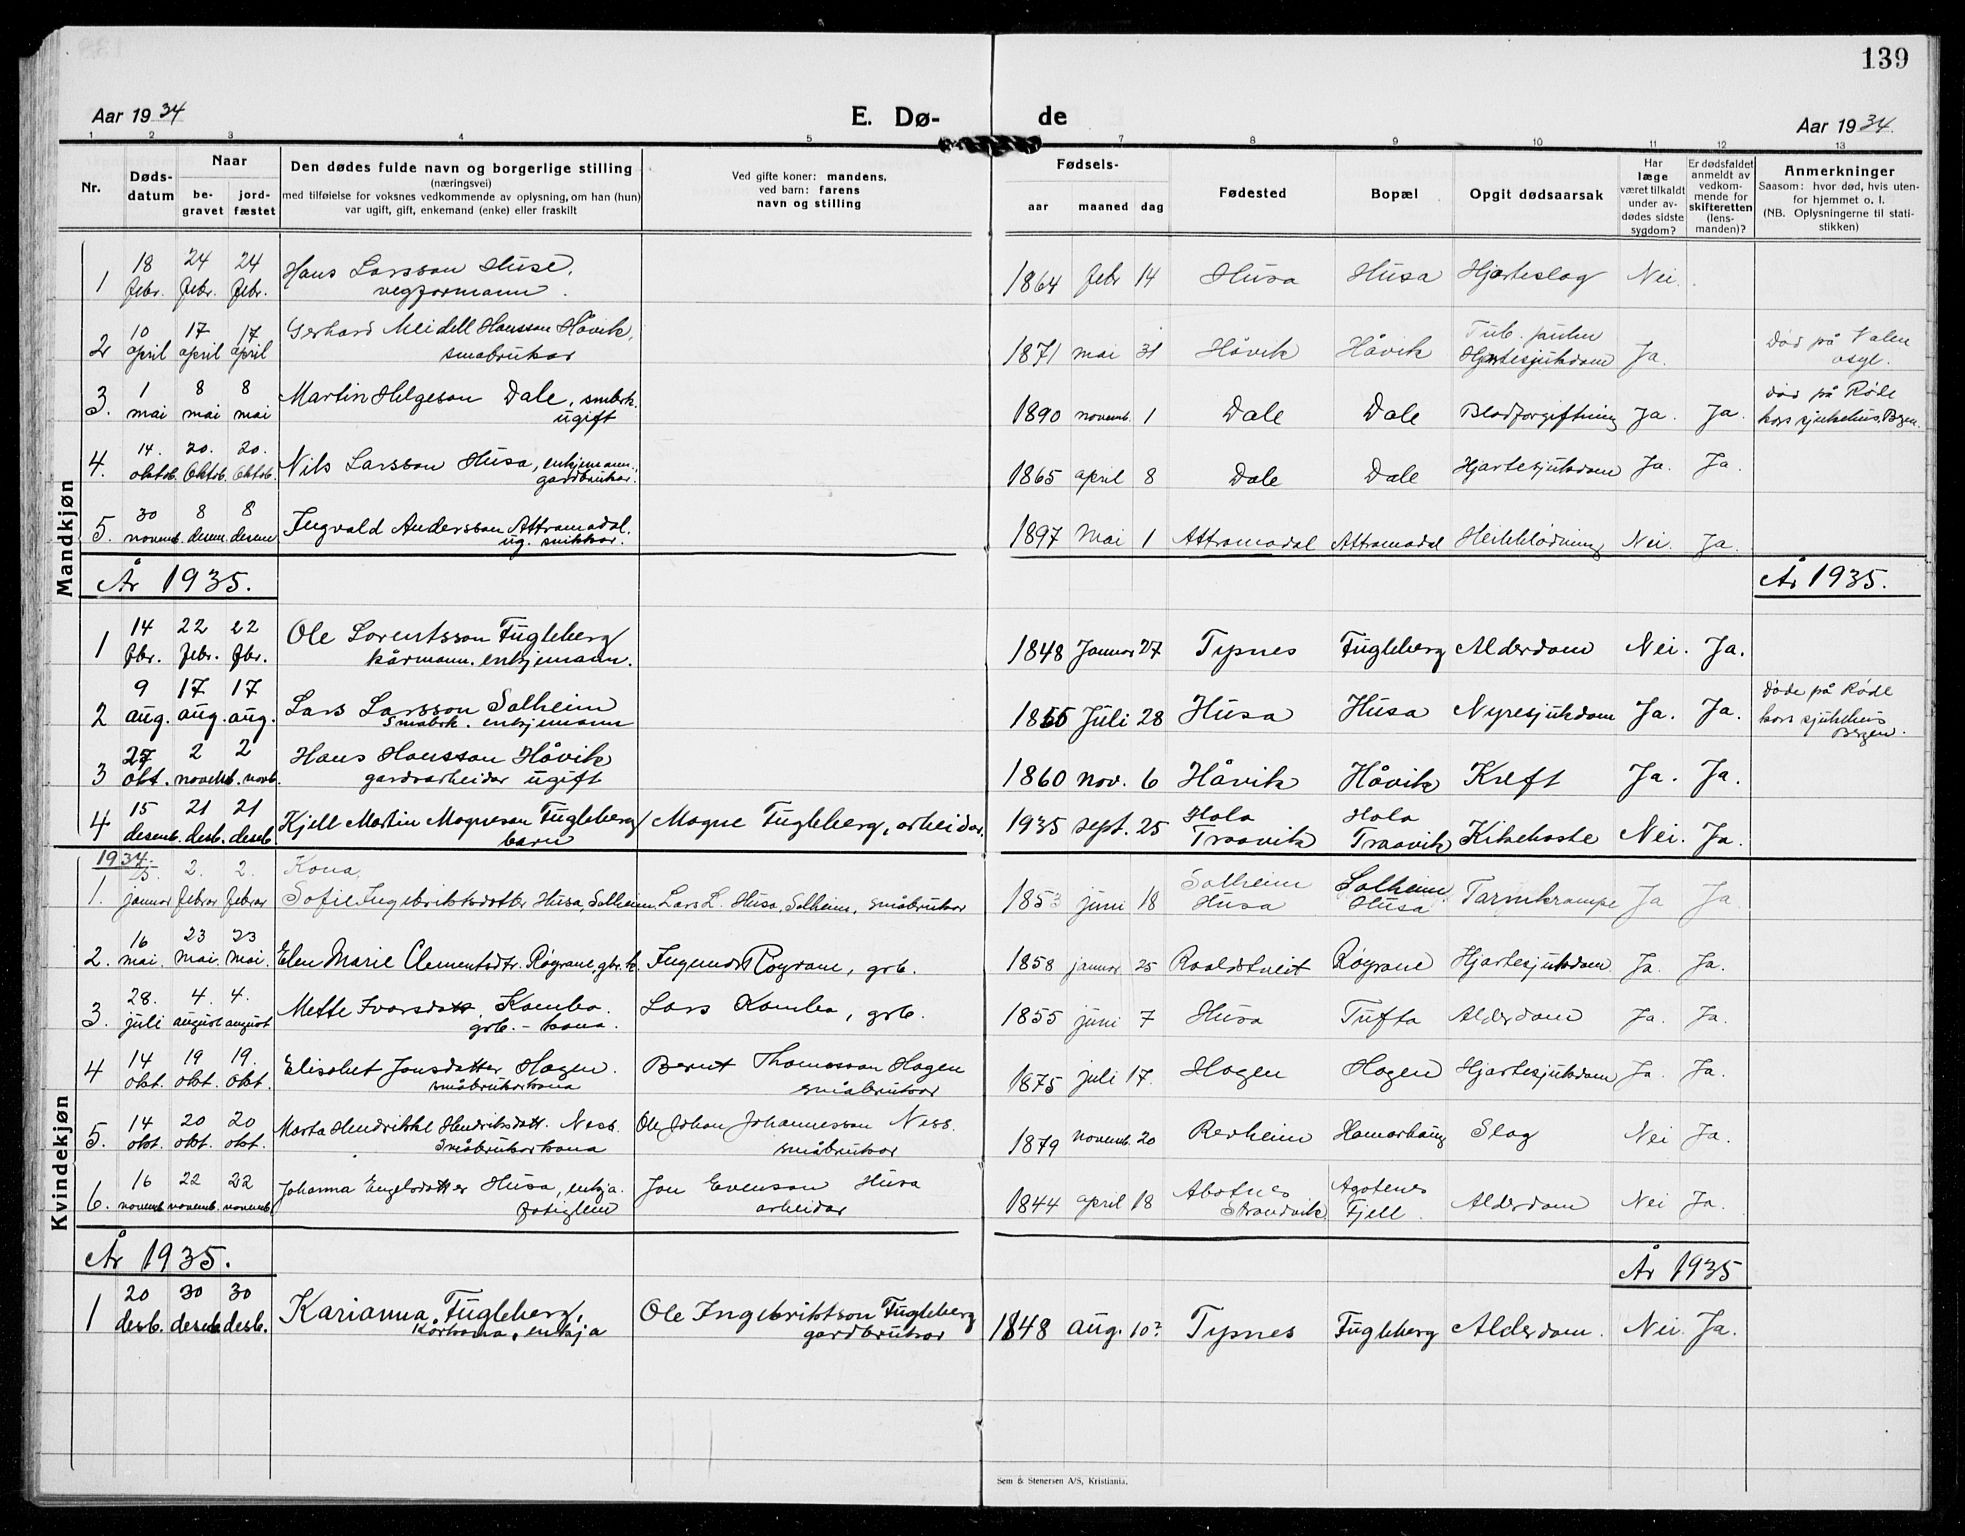 139
Aar 1934 E. Dø- de Aar 1934.
1 2 3 4 5 7 8 9 10 11 12 13
Nr.
Døds-
datum
Naar
be-
gravet
jord-
fæstet
Den dødes fulde navn og borgerlige stilling
(næringsvei)
med tilføielse for voksnes vedkommende av oplysning, om han (hun)
var ugift, gift, enkemand (enke) eller fraskilt
Ved gifte koner: mandens,
ved barn: farens
navn og stilling
Fødsels-
aar maaned dag
Fødested
Bopæl
Opgit dødsaarsak
Har
læge
været tilkaldt
under av-
dødes sidste
sygdom?
Er dødsfaldet
anmeldt av
vedkom-
mende for
skifteretten
(lens-
manden)?
Anmerkninger
Saasom: hvor død, hvis uten-
for hjemmet o. l.
(NB. Oplysningerne til stati-
stikken)
Mandkjøn
18 24 24 Hans Larsson Huse,
1 febr. febr. febr. vegformann. 1864 febr 14 Husa Husa Hjarteslag Nei.
10 17 17 Gerhard Meidell Hansson Håvik, Tub. pulm Død på Valen
2 april april april småbrukar 1871 mai 31 Håvik Håvik Hjartesjukdom Ja. asyl.
1 8 8 Martin Helgeson Dale, smbrk. død på Røde
3. mai mai mai ugift 1890 novemb. 1 Dale Dale Blodforgiftning Ja. Ja. kors sjukehus, Bgen.
14. 20. 20. Nils Larsson Husa, enkjemann.
4. oktob. Oktob. Oktob. gardbrukar. 1865 april 8 Dale Dale Hjartesjukdom Ja. Ja.
30 8 8 Ingvald Andersson Attramadal.
5. novemb. desem. desem ug. snikkar. 1897 Mai 1 Attramadal Attramadal Heilblødning Nei. Ja.
År 1935. År 1935.
14 22 22 Ole Lorentsson Fugleberg
1 fbr. febr. fbr. kårmann. enkjemann. 1848 Januar 27 Typnes Fugleberg Alderdom Nei. Ja.
9 17 17 Lars Larsson Solheim Døde på Røde
2 aug. aug. aug. Småbrk. enkjemann 1855 Juli 28 Husa Husa Nyresjukdom Ja. Ja. kors sjukehus
Bergen.
27 2 2 Hans Hansson Håvik
3 okt. novemb. novb. gardsarbeidar ugift 1860 nov. 6 Håvik Håvik Kreft Ja. Ja.
15 21 21 Kjell Martin Magneson Fugleberg Magne Fugleberg, arbeidar. Hola Hola
4 desemb. desb. desb. barn 1935 sept. 25 Traavik Traavik Kikehoste Nei. Ja.
Kvindekjøn
1934.
25. 2. 2. Kona, Solheim Solheim
1. januar febrar febrar Sofie Ingebriktsdotter Husa, Solheim Lars L. Husa, Solheim, småbrukar 1853 juni 18 Husa Husa Tarmkrampe Ja Ja
16 23 23
2. mai. mai. mai. Elen Marie Clementsdtr. Røyrane, gbr. k. Ingemar Røyrane, grb. 1858 januar 25 Roaldstveit Røyrane Hjartesjukdom Ja. Ja.
28. 4. 4. Mette Ivarsdatt. Kambo. Lars Kambo, grb.
3. juli august august grb. - kona. 1855 juni 7 Husa Tufta Alderdom Ja. Ja.
14 19 19. Elisabet Jonsdatter Hagen. Bernt Thomasson Hagen
4 okt. okt. okt. småbrukarkona småbrukar 1875 juli 17. Hagen Hagen Hjartesjukdom Ja. Ja.
14 20 20 Marta Hendrikke Hendriksdatr. Ness. Ole Johan Johannesson Ness.
5. okt. okt. okt. Småbrukarkona småbrukar 1879 novemb. 20 Revheim Hamarhaug Slag Nei Ja.
16 22 22 Johanna Engelsdotter Husa, enkja. Jon Evenson Husa Strandvik Fjell.
6. novemb novemb. novemb. fatiglem arbeidar 1844 april 18 Alderdom Nei Ja.
År 1935. År 1935
20 30 30 Karianna Fugleberg, Ole Ingebriktson Fugleberg
1 desb. desemb. desb. Kårkona, enkja gardbrukar 1848 aug. 10? Typnes Fugleberg Alderdom. Nei. Ja.
Sem & Stenersen A/S, Kristiania.